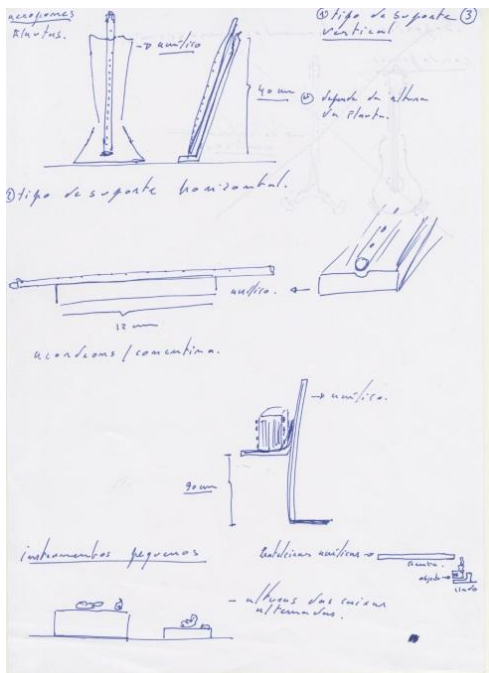 aerofones
flautas.
→ acrílico
① tipo de suporte ③
vertical
40 cm
depende da altura
da flauta.
② tipo de suporte horizontal.
acrílico.
12 cm
acordeons / concertina.
→ acrílico.
90 cm
instrumentos pequenos
acrílicas →
frente.
objeto →
lado
- alturas das caixas
alternadas.